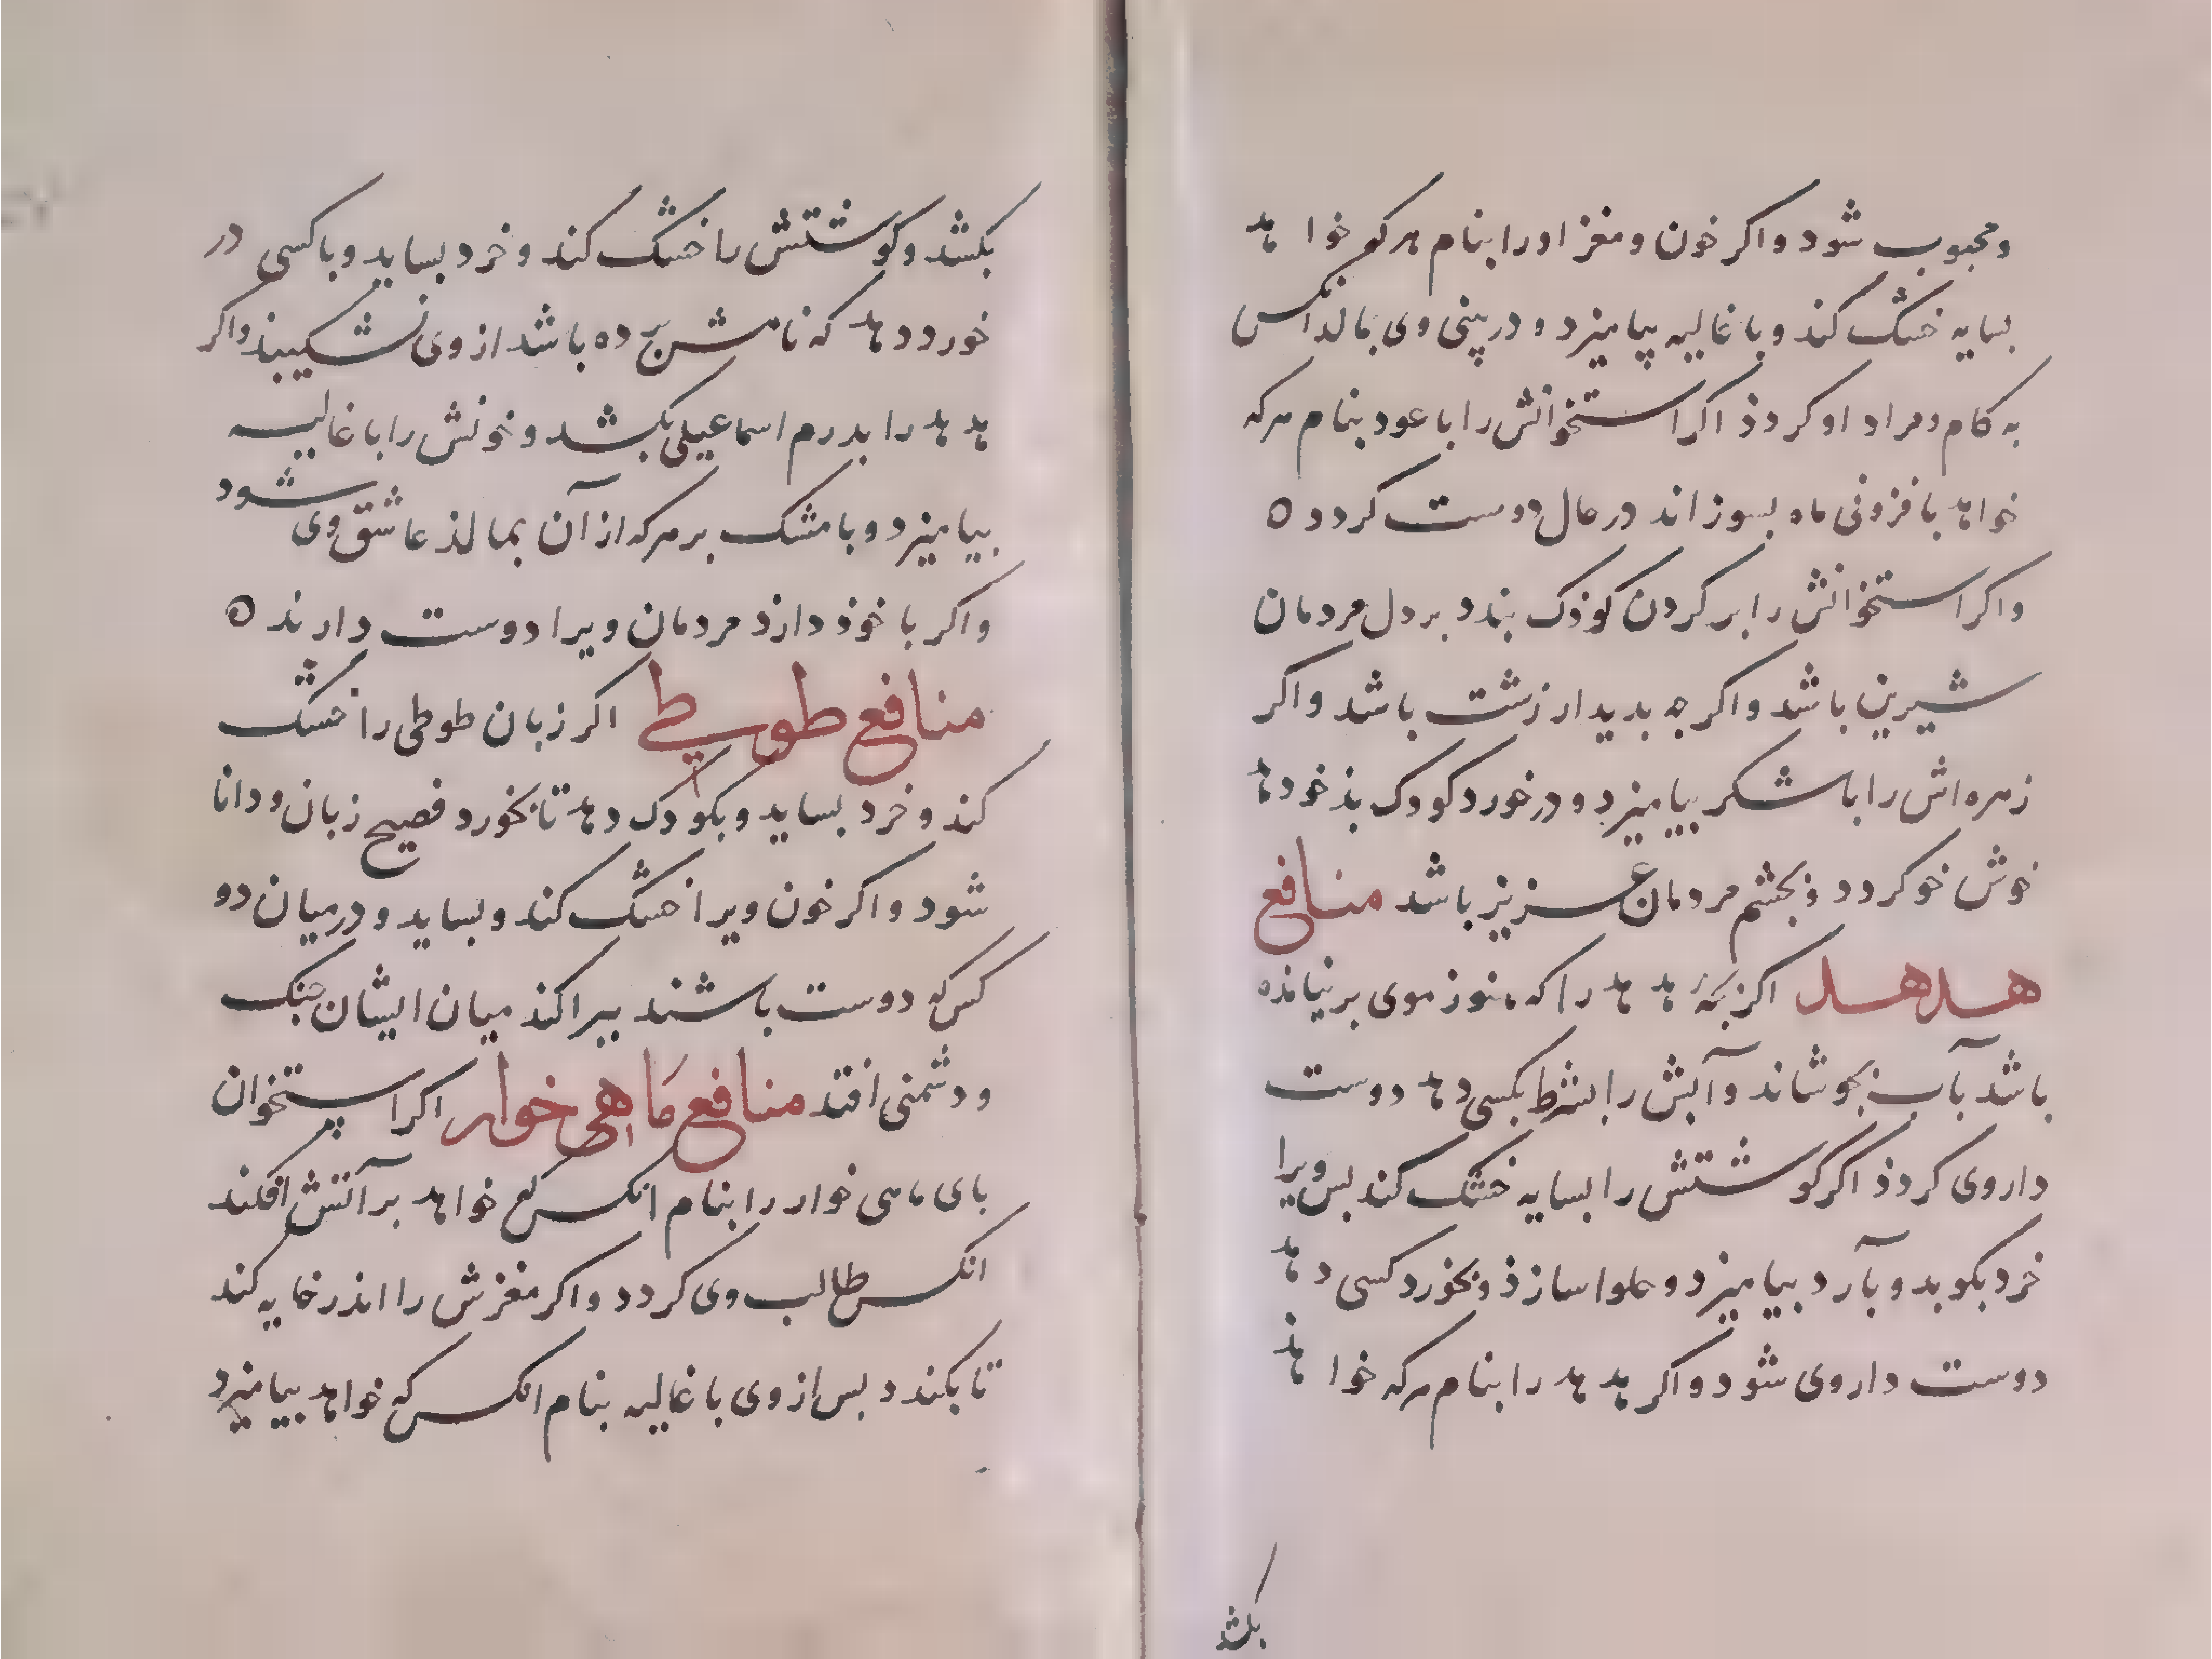 ومحبوب شود واکر خون و مغز اورا بنام هرکو خواهد
بسایه خشک کند و با غالیه بیامیزد و در بینی وی بمالد انکس
به کام ومراد او کردذ اکر استخوانش را با عود بنام هرکه
خواهد بافزونی ماه بسوزاند در حال دوست کردد ه
واکر استخوانش را بر کردن کوذک بندد بر دل مردمان
شیرین باشد واکرجه بدیدار زشت باشد واکر
زهره‌اش را با شکر بیامیزد و در خورد کودک بذخو دهد
خوش خو کردد وبجشم مردمان عزیز باشد منافع
هدهد اکر بجهٔ هدهد را که هنوز موی بر نیامذه
باشد بآب بجوشاند و آبش را بشرط بکسی دهد دوست
دار وی کردذ اکر کوشتش را بسایه خشک کند بس ویرا
خرد بکوبد و بآرد بیامیزد و حلوا سازذ وبخورد کسی دهد
دوست دار وی شود واکر هدهد را بنام هرکه خواهذ
بکشد
بکشد و کوشتش را خشک کند و خرد بساید و با کسی در
خورد دهد که نامش برده باشد از وی نشکیبذ واکر
هدهد را بدرم اسماعیلی بکشد و خونش را با غالیه
بیامیزد و با مشک بر هرکه از آن بمالذ عاشق وی شود
واکر با خوذ دارذ مردمان ویرا دوست دارند ه
منافع طوطی اکر زبان طوطی را خشک
کند و خرد بساید و بکودک دهد تا بخورد فصیح زبان و دانا
شود واکر خون ویرا خشک کند و بساید و در میان دو
کس که دوست باشند ببراکند میان ایشان جنک
و دشمنی افتد منافع ماهی خوار اکر استخوان
بای ماهی خوار را بنام انکس که خواهد بر آتش افکند
انکس طالب وی کردد واکر مغزش را اندر خایه کند
تا بکندد بس از وی با غالیه بنام انکس که خواهد بیامیزد